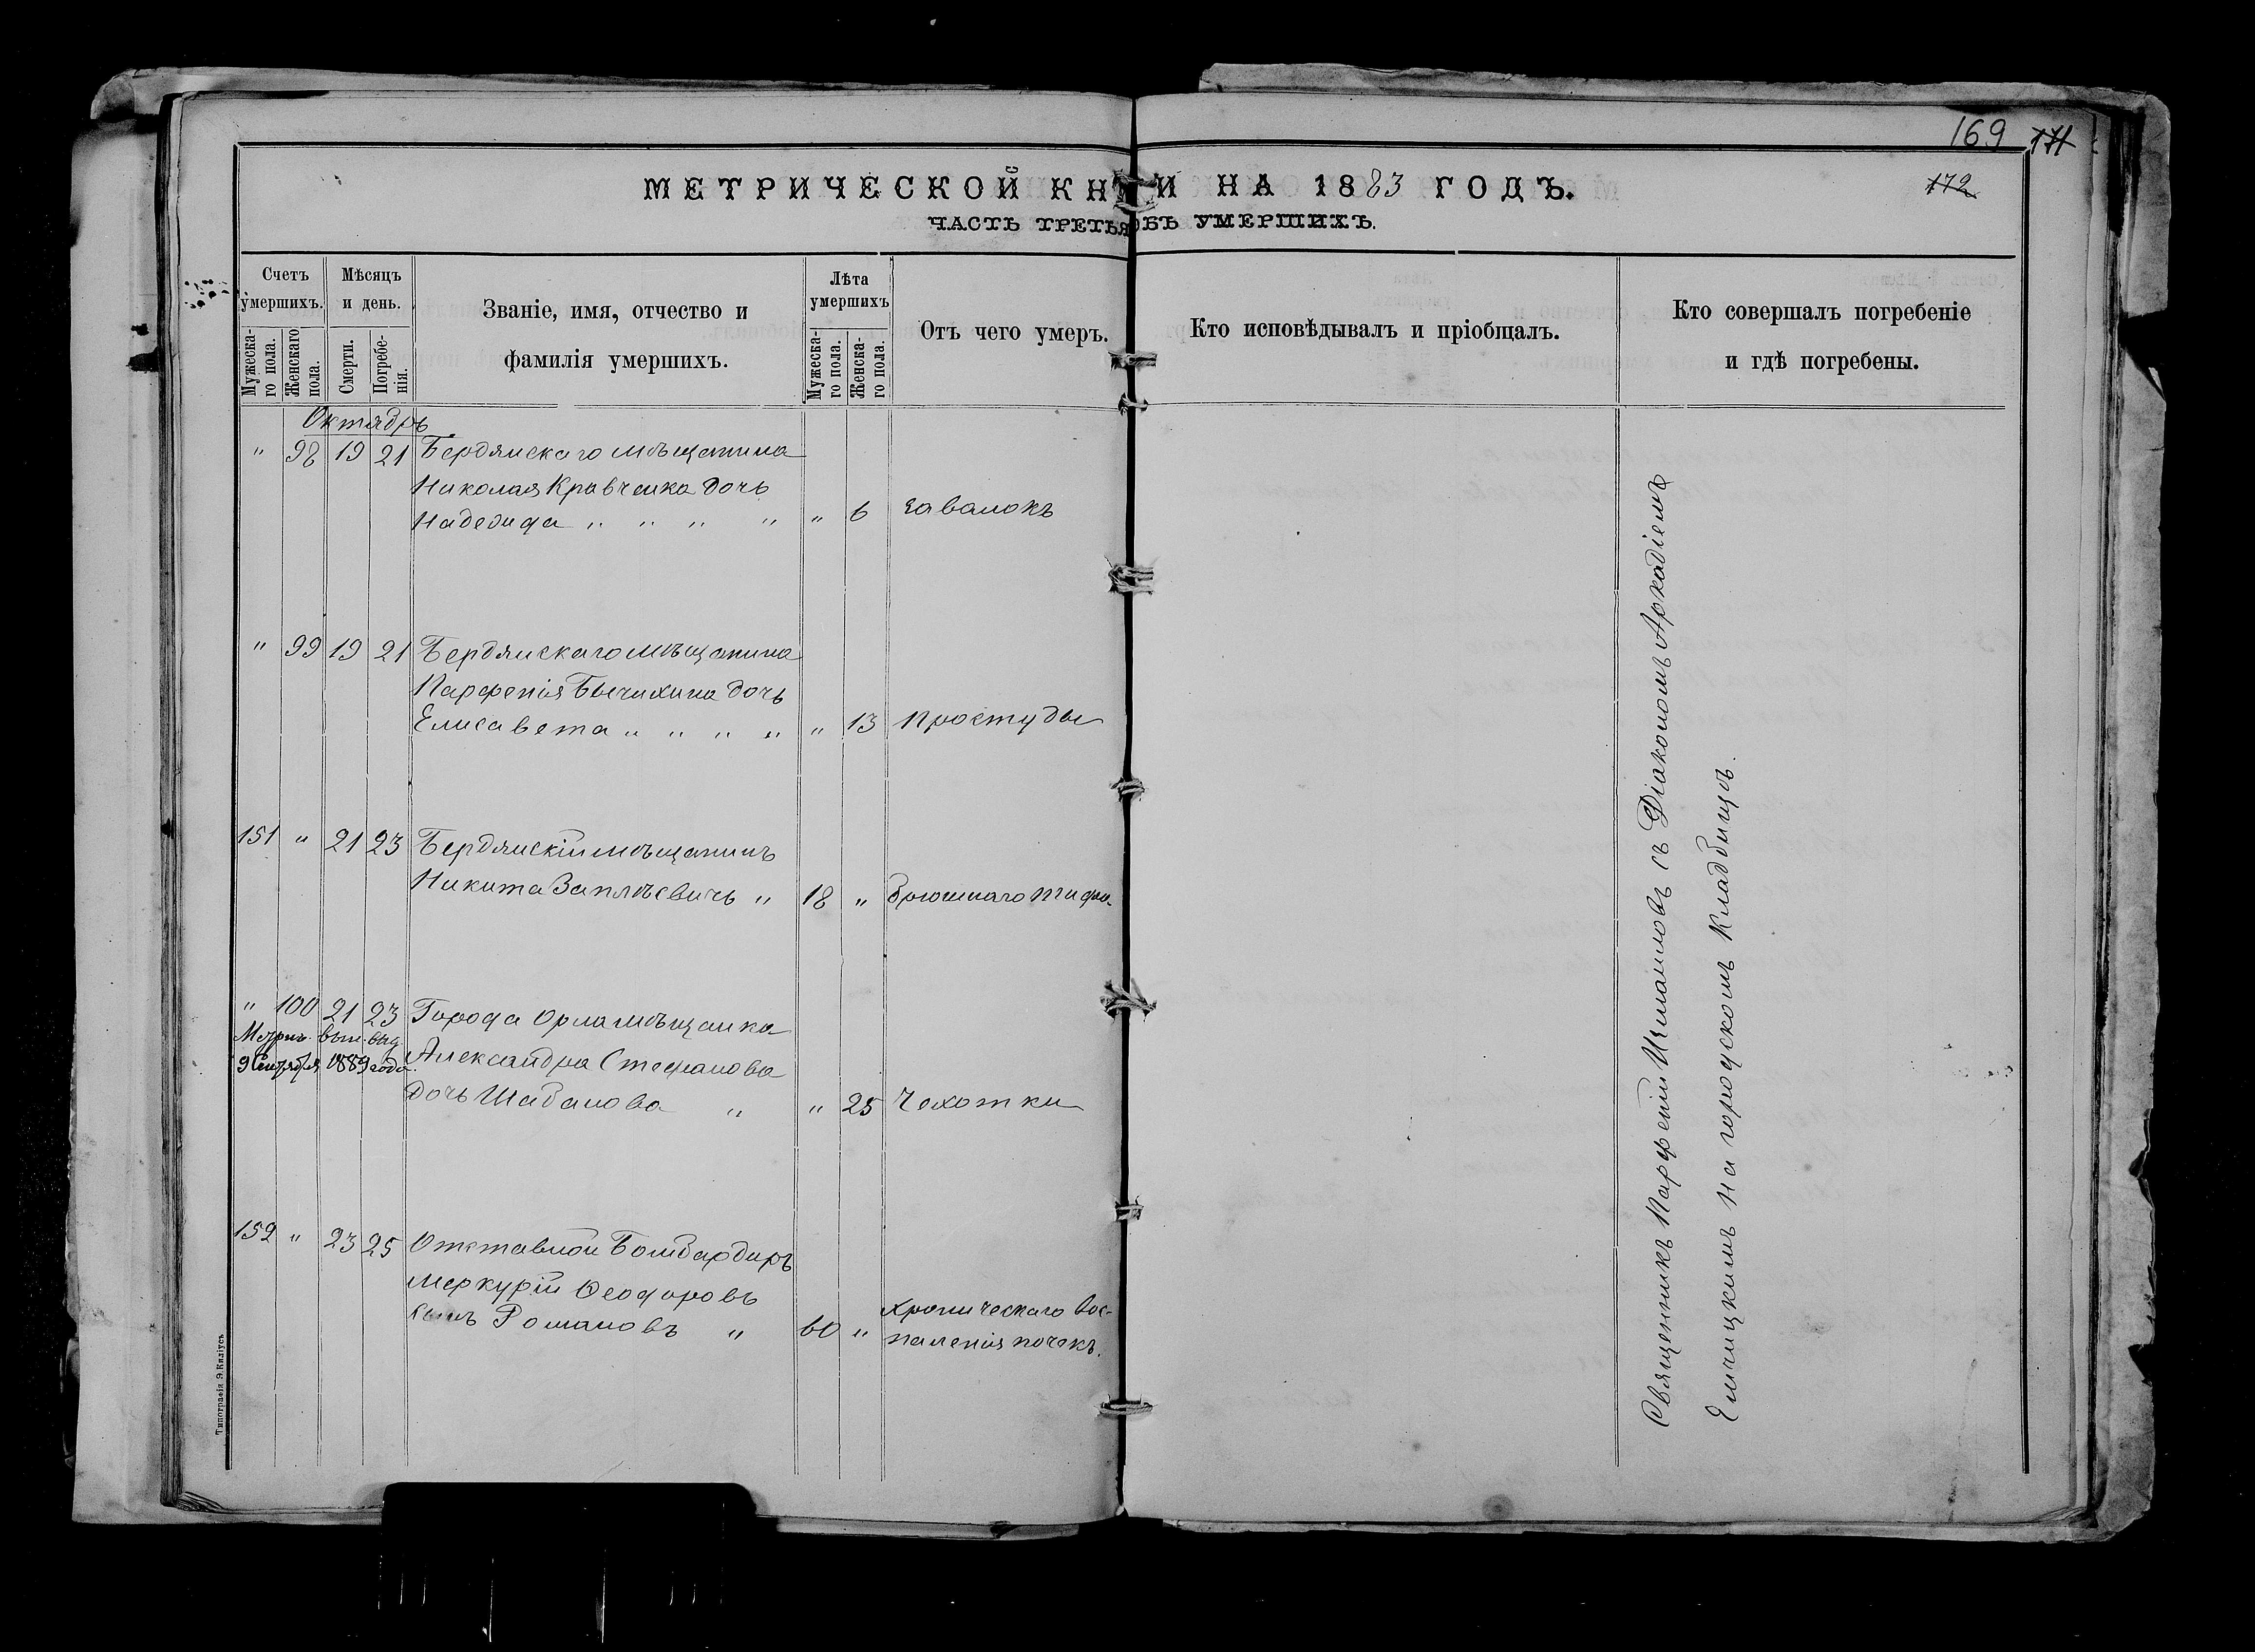 169 171
172
МЕТРИЧЕСКОЙ КНИГИ НА 1883 ГОДЪ.
ЧАСТЬ ТРЕТЬЯ ОБЪ УМЕРШИХЪ.
Счетъ умершихъ.
Мужескаго пола.
Женскаго пола.
Мѣсяцъ и день.
Смерти.
Погребенія.
Званіе, имя, отчество и
фамилія умершихъ.
Лѣта умершихъ
Мужескаго пола.
Женскаго пола.
Отъ чего умеръ.
Кто исповѣдывалъ и пріобщалъ.
Кто совершалъ погребеніе
и гдѣ погребены.
Октябрь
" 98 19 21 Бердянскаго мѣщанина
Николая Кравченка дочь
Надежда " " " " " 6 завалокъ
" 99 19 21 Бердянскаго мѣщанина
Парфенія Бычихина дочь
Елисавета " " " " " 13 простуды
151 " 21 23 Бердянскій мѣщанинъ
Никита " 18 " брюшнаго тифа
" 100 21 23 Города Орла мѣщанка
Метрич. вып. выд.
9 Сентября 1889 года.
Александра Стефанова
дочь Шабанова " " 25 Чахотки
152 " 23 25 Отставной Бомбардиръ
Меркурій Ѳеодоровъ
сынъ Романовъ " 60 " хроническаго вос-
паленія почекъ.
Священникъ Парфеній съ Діакономъ Аркадіемъ
на городскомъ кладбищѣ.
Типографія Э. Киліусъ